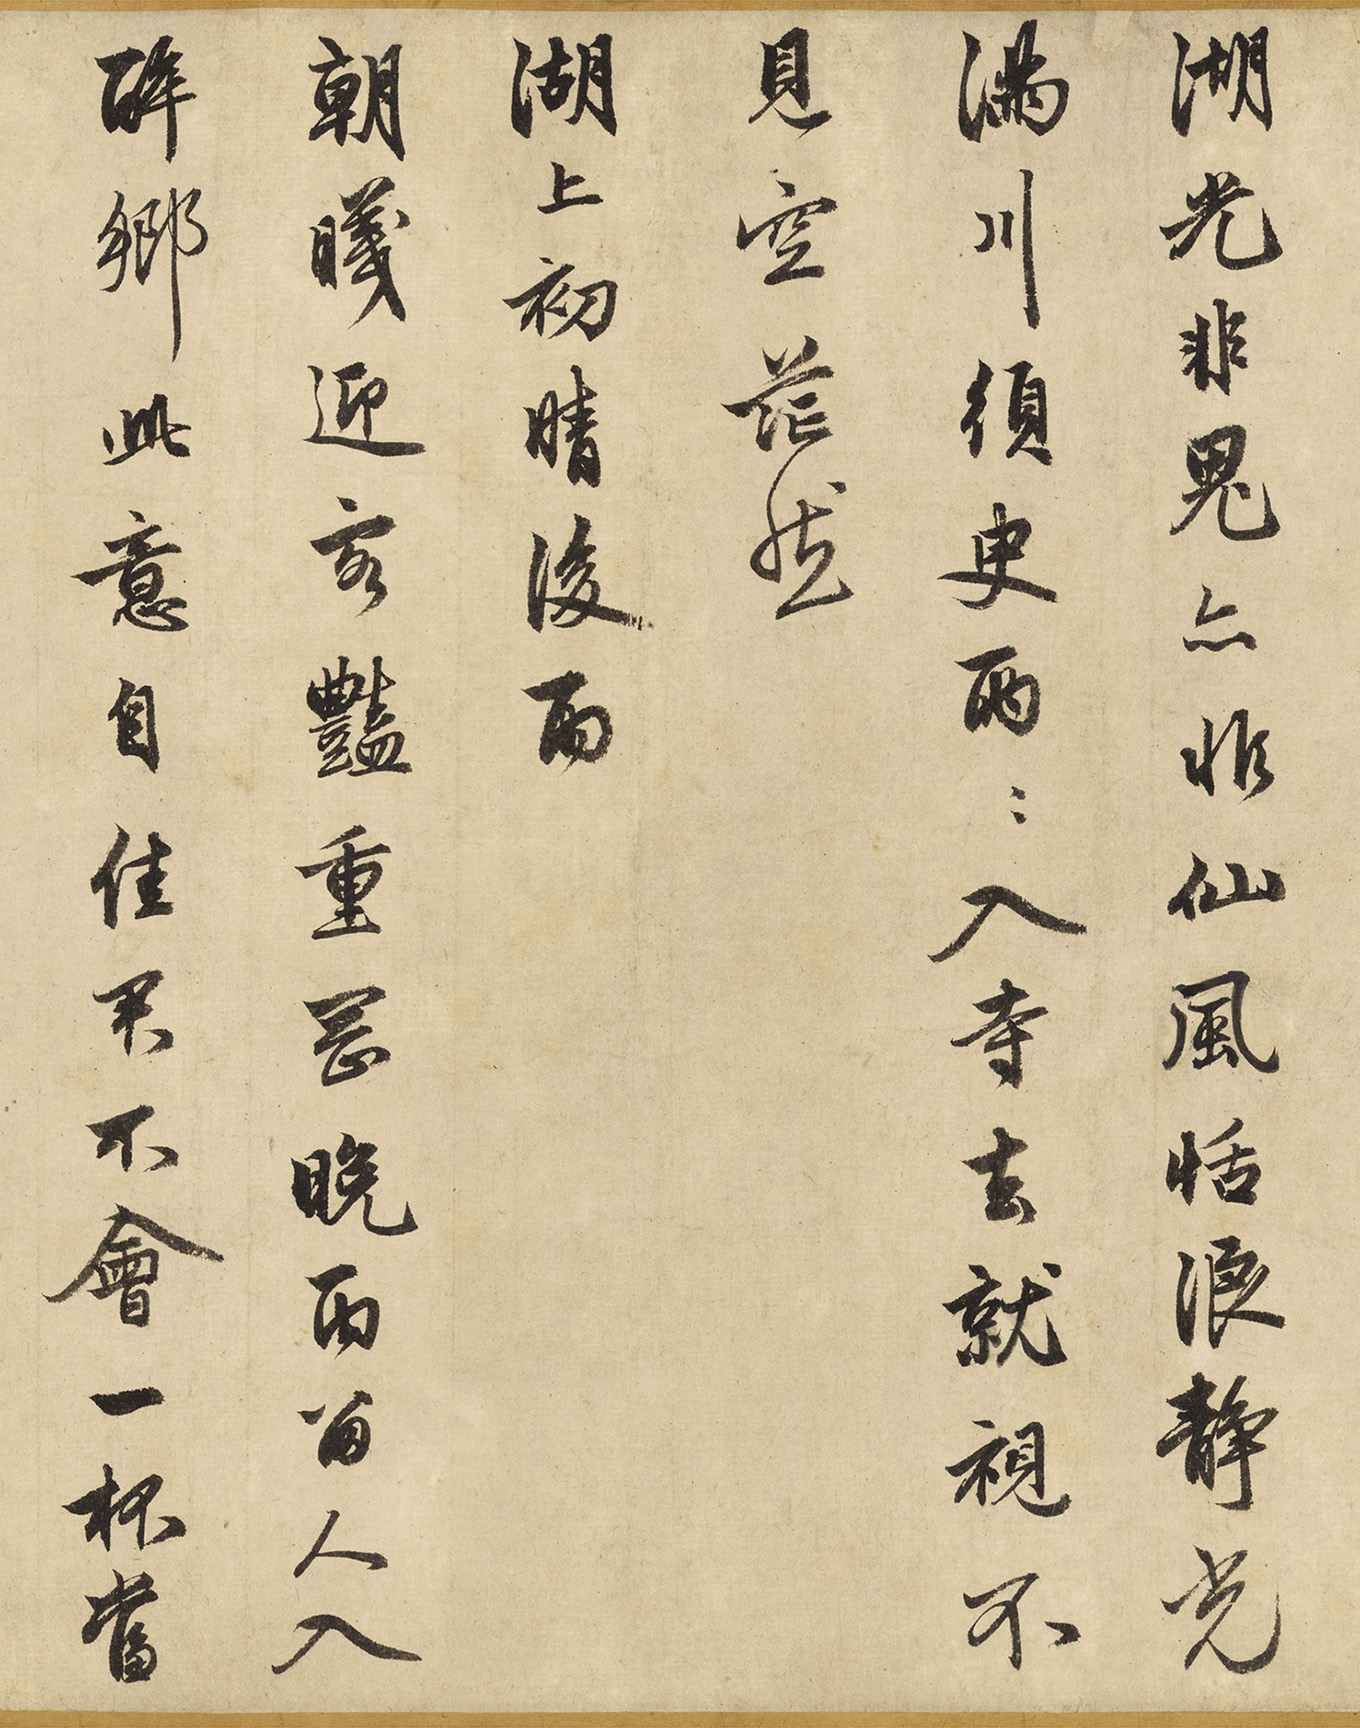 湖光非鬼亦非仙風恬浪靜光
滿川須臾兩〻入寺去就視不
見空茫然
湖上初晴後雨
朝曦迎客豔重岡晚雨留人入
醉鄉此意自佳君不會一杯當